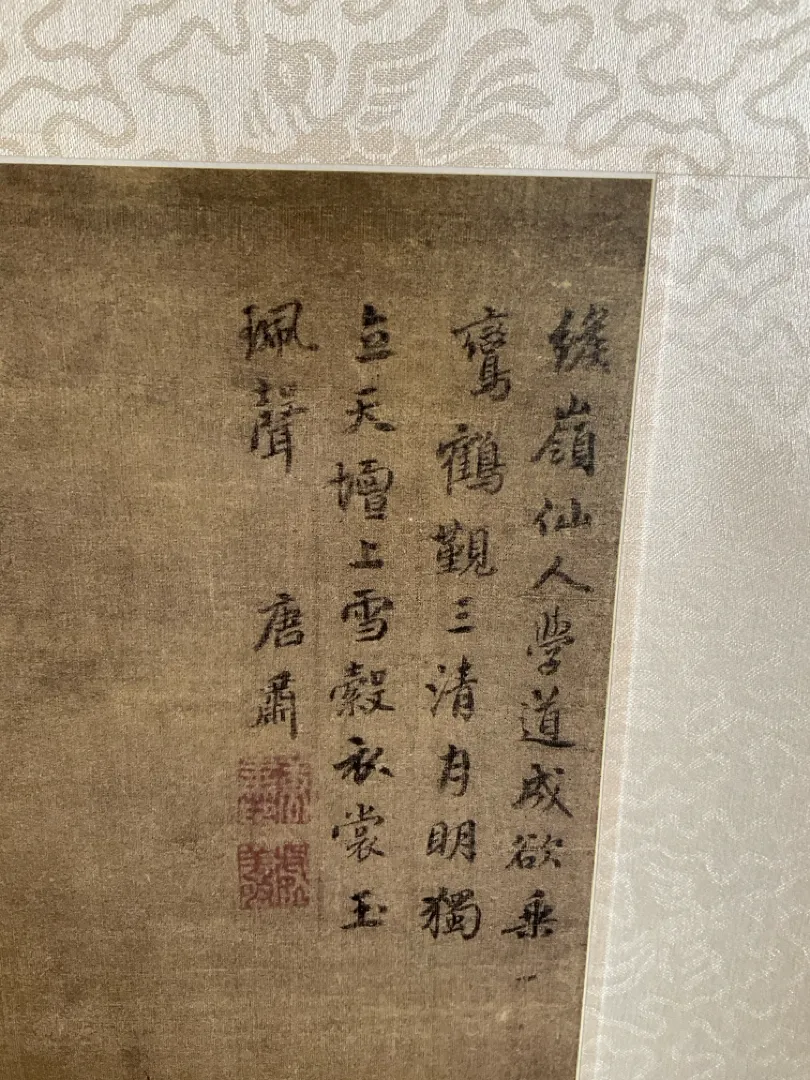 緱嶺仙人學道成欲乘
鸞鶴觀三清月明獨
立天壇上雪縠衣裳玉
珮聲 唐肅